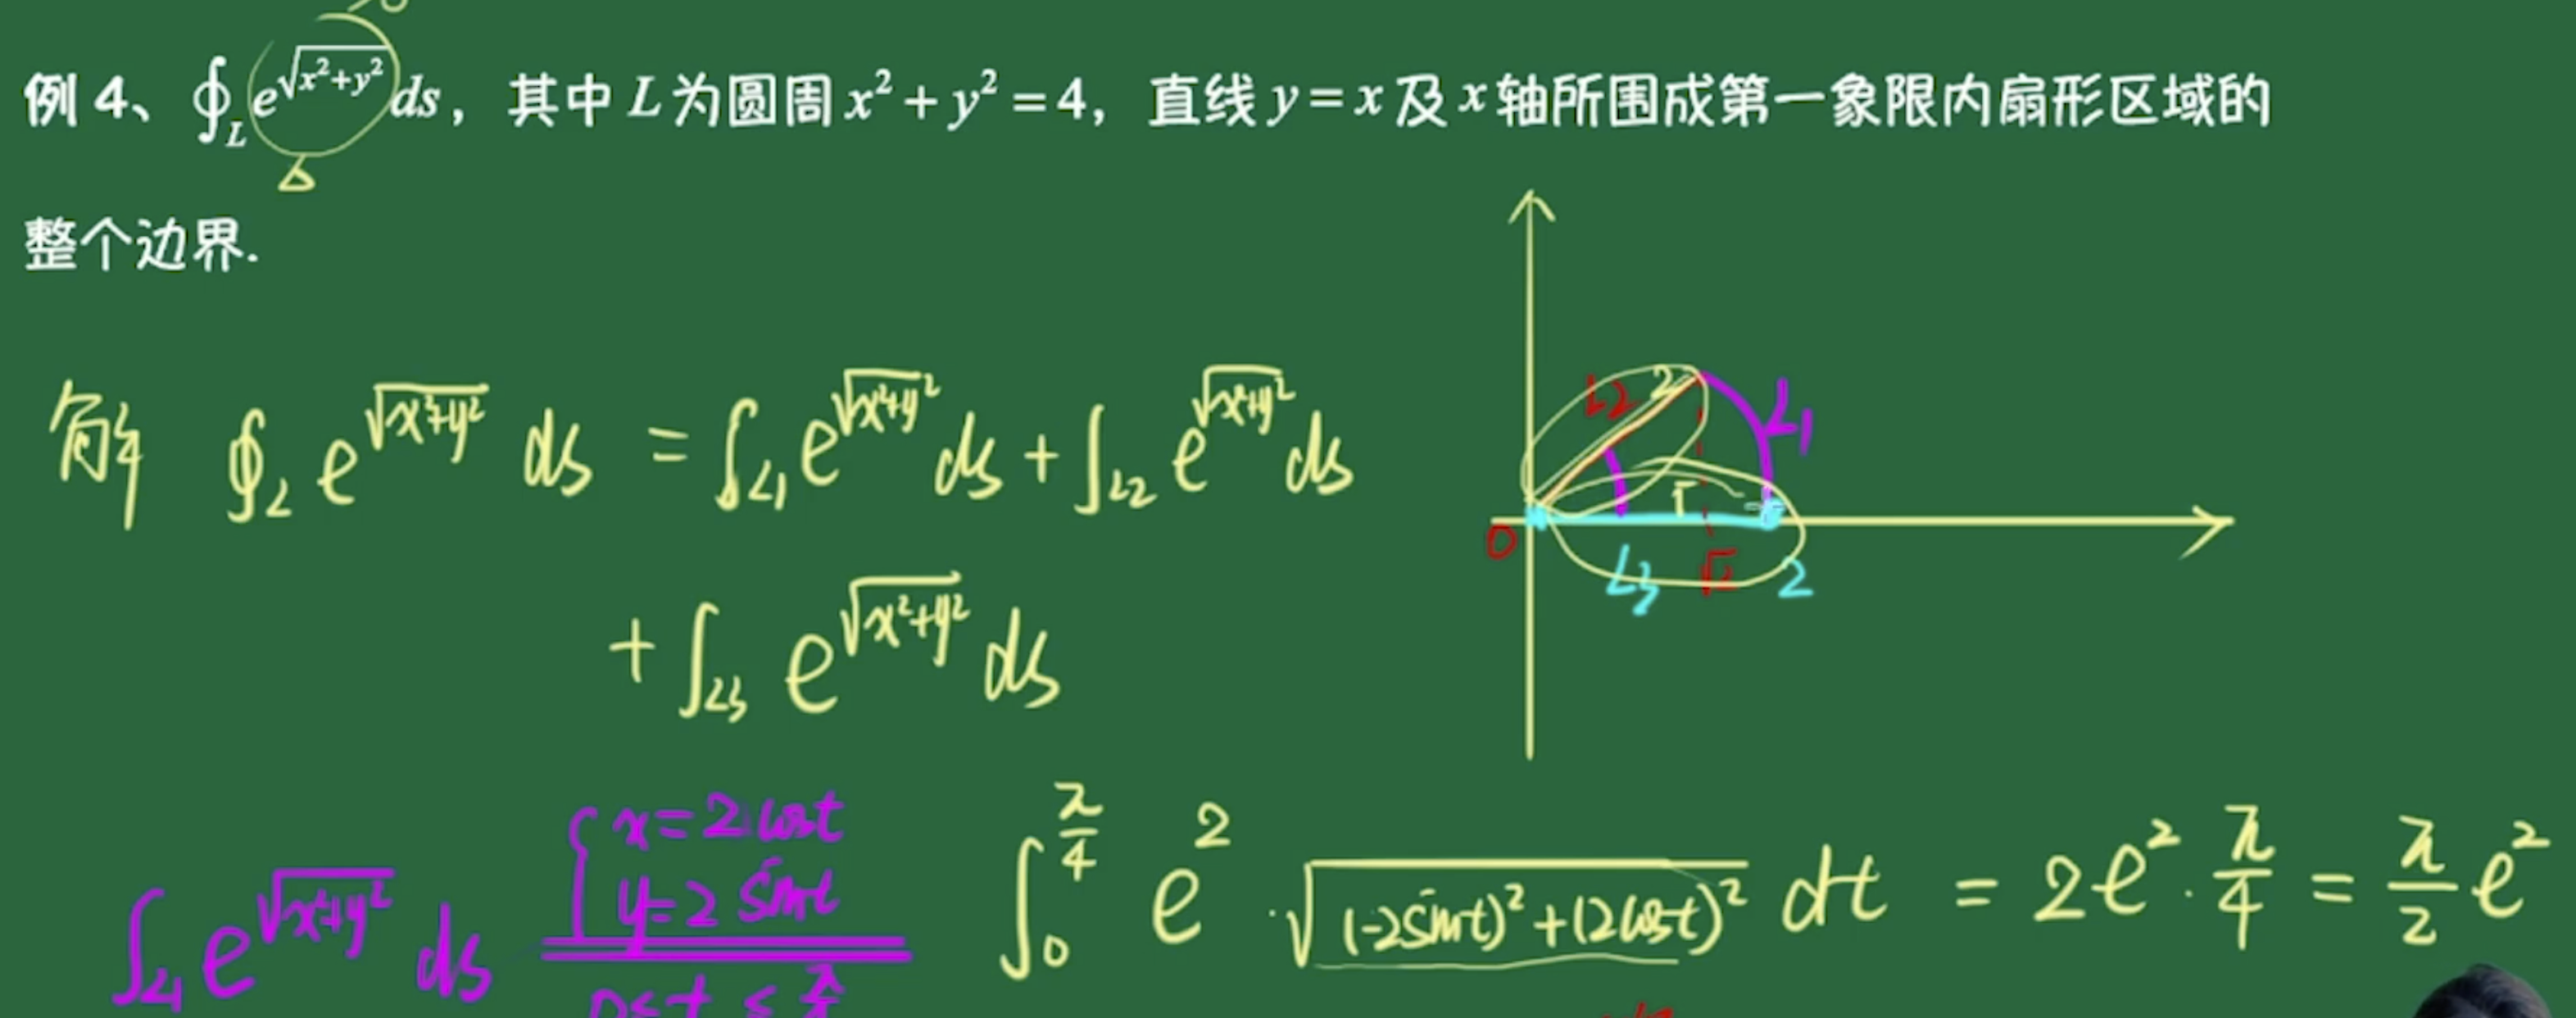 例 4、∮_L e^{√(x²+y²)} ds，其中 L 为圆周 x² + y² = 4，直线 y = x 及 x 轴所围成第一象限内扇形区域的
整个边界.
解 ∮_L e^{√(x²+y²)} ds = ∫_{L1} e^{√(x²+y²)} ds + ∫_{L2} e^{√(x²+y²)} ds
+ ∫_{L3} e^{√(x²+y²)} ds
L2 2 L1
0 L3 √2 2
∫_{L1} e^{√(x²+y²)} ds {x=2cost y=2sint 0≤t≤π/4 ∫_0^{π/4} e² · √((-2sint)²+(2cost)²) dt = 2e² · π/4 = π/2 e²